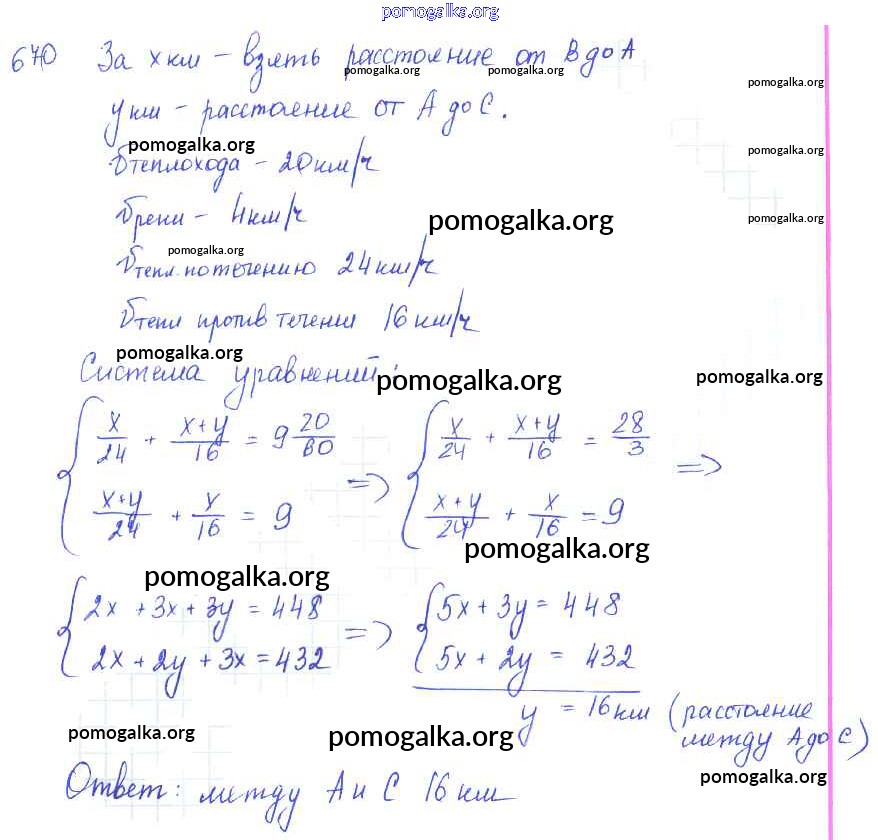 pomogalka.org
670 За x км – взять расстояние от В до А
pomogalka.org pomogalka.org
pomogalka.org
y км – расстоение от А до С.
pomogalka.org pomogalka.org
υтеплохода – 20 км/ч
υреки – 4 км/ч
pomogalka.org pomogalka.org
pomogalka.org
υтепл. по течению 24 км/ч
υтепл против течения 16 км/ч
pomogalka.org
Система уравнений:
pomogalka.org pomogalka.org
{ x/24 + (x+y)/16 = 9 20/60 => { x/24 + (x+y)/16 = 28/3 =>
{ (x+y)/24 + x/16 = 9 { (x+y)/24 + x/16 = 9
pomogalka.org
pomogalka.org
{ 2x + 3x + 3y = 448 => { 5x + 3y = 448
{ 2x + 2y + 3x = 432 { 5x + 2y = 432
y = 16 км (расстояние
между А до С)
pomogalka.org pomogalka.org
pomogalka.org
Ответ: между А и С 16 км